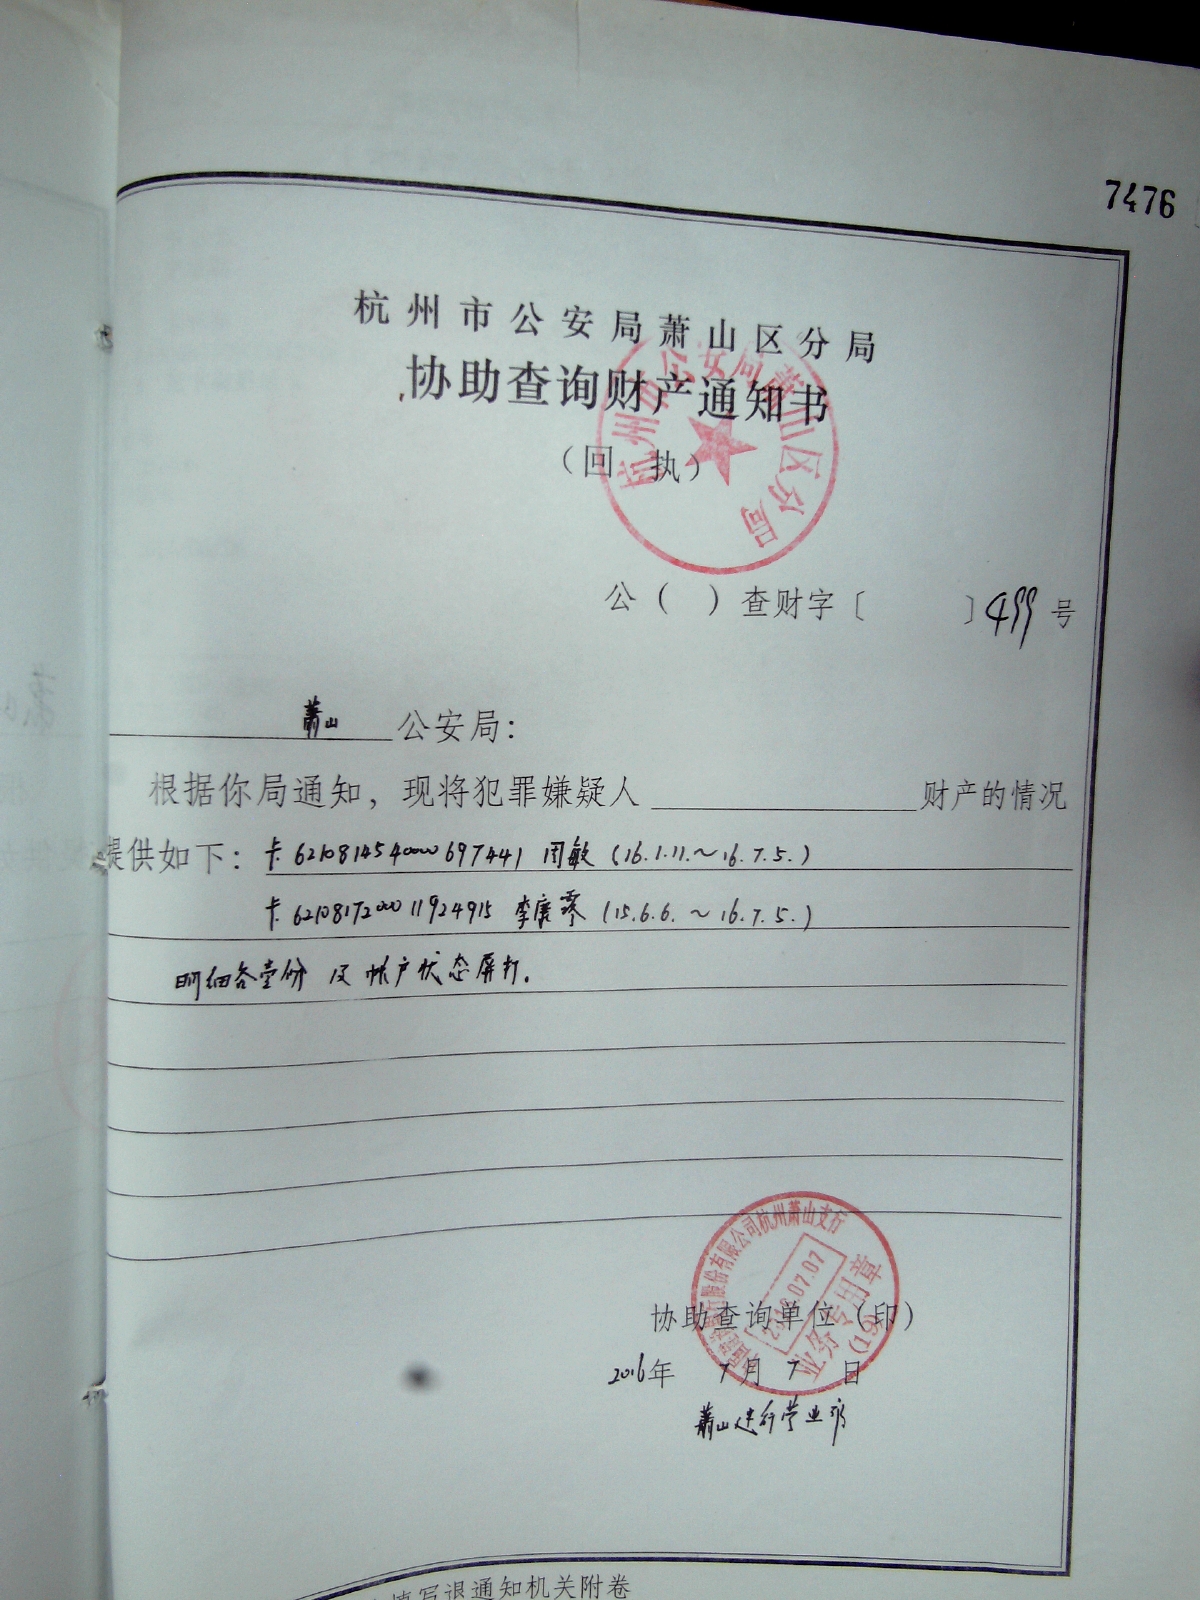 7476
杭州市公安局萧山区分局
协助查询财产通知书
（回 执）
杭州市公安局萧山区分局
公（ ）查财字〔 〕499号
萧山 公安局：
根据你局通知，现将犯罪嫌疑人 财产的情况
提供如下：卡 6210814540000697441 周敏（16.1.11.～16.7.5.）
卡 6210817200011924915 李康琴（15.6.6.～16.7.5.）
明细各壹份 及 帐户状态屏打.
股份有限公司杭州萧山支行
2016.07.07
业务专用章
(19)
协助查询单位（印）
2016年 7月 7 日
萧山建行营业部
填写退通知机关附卷